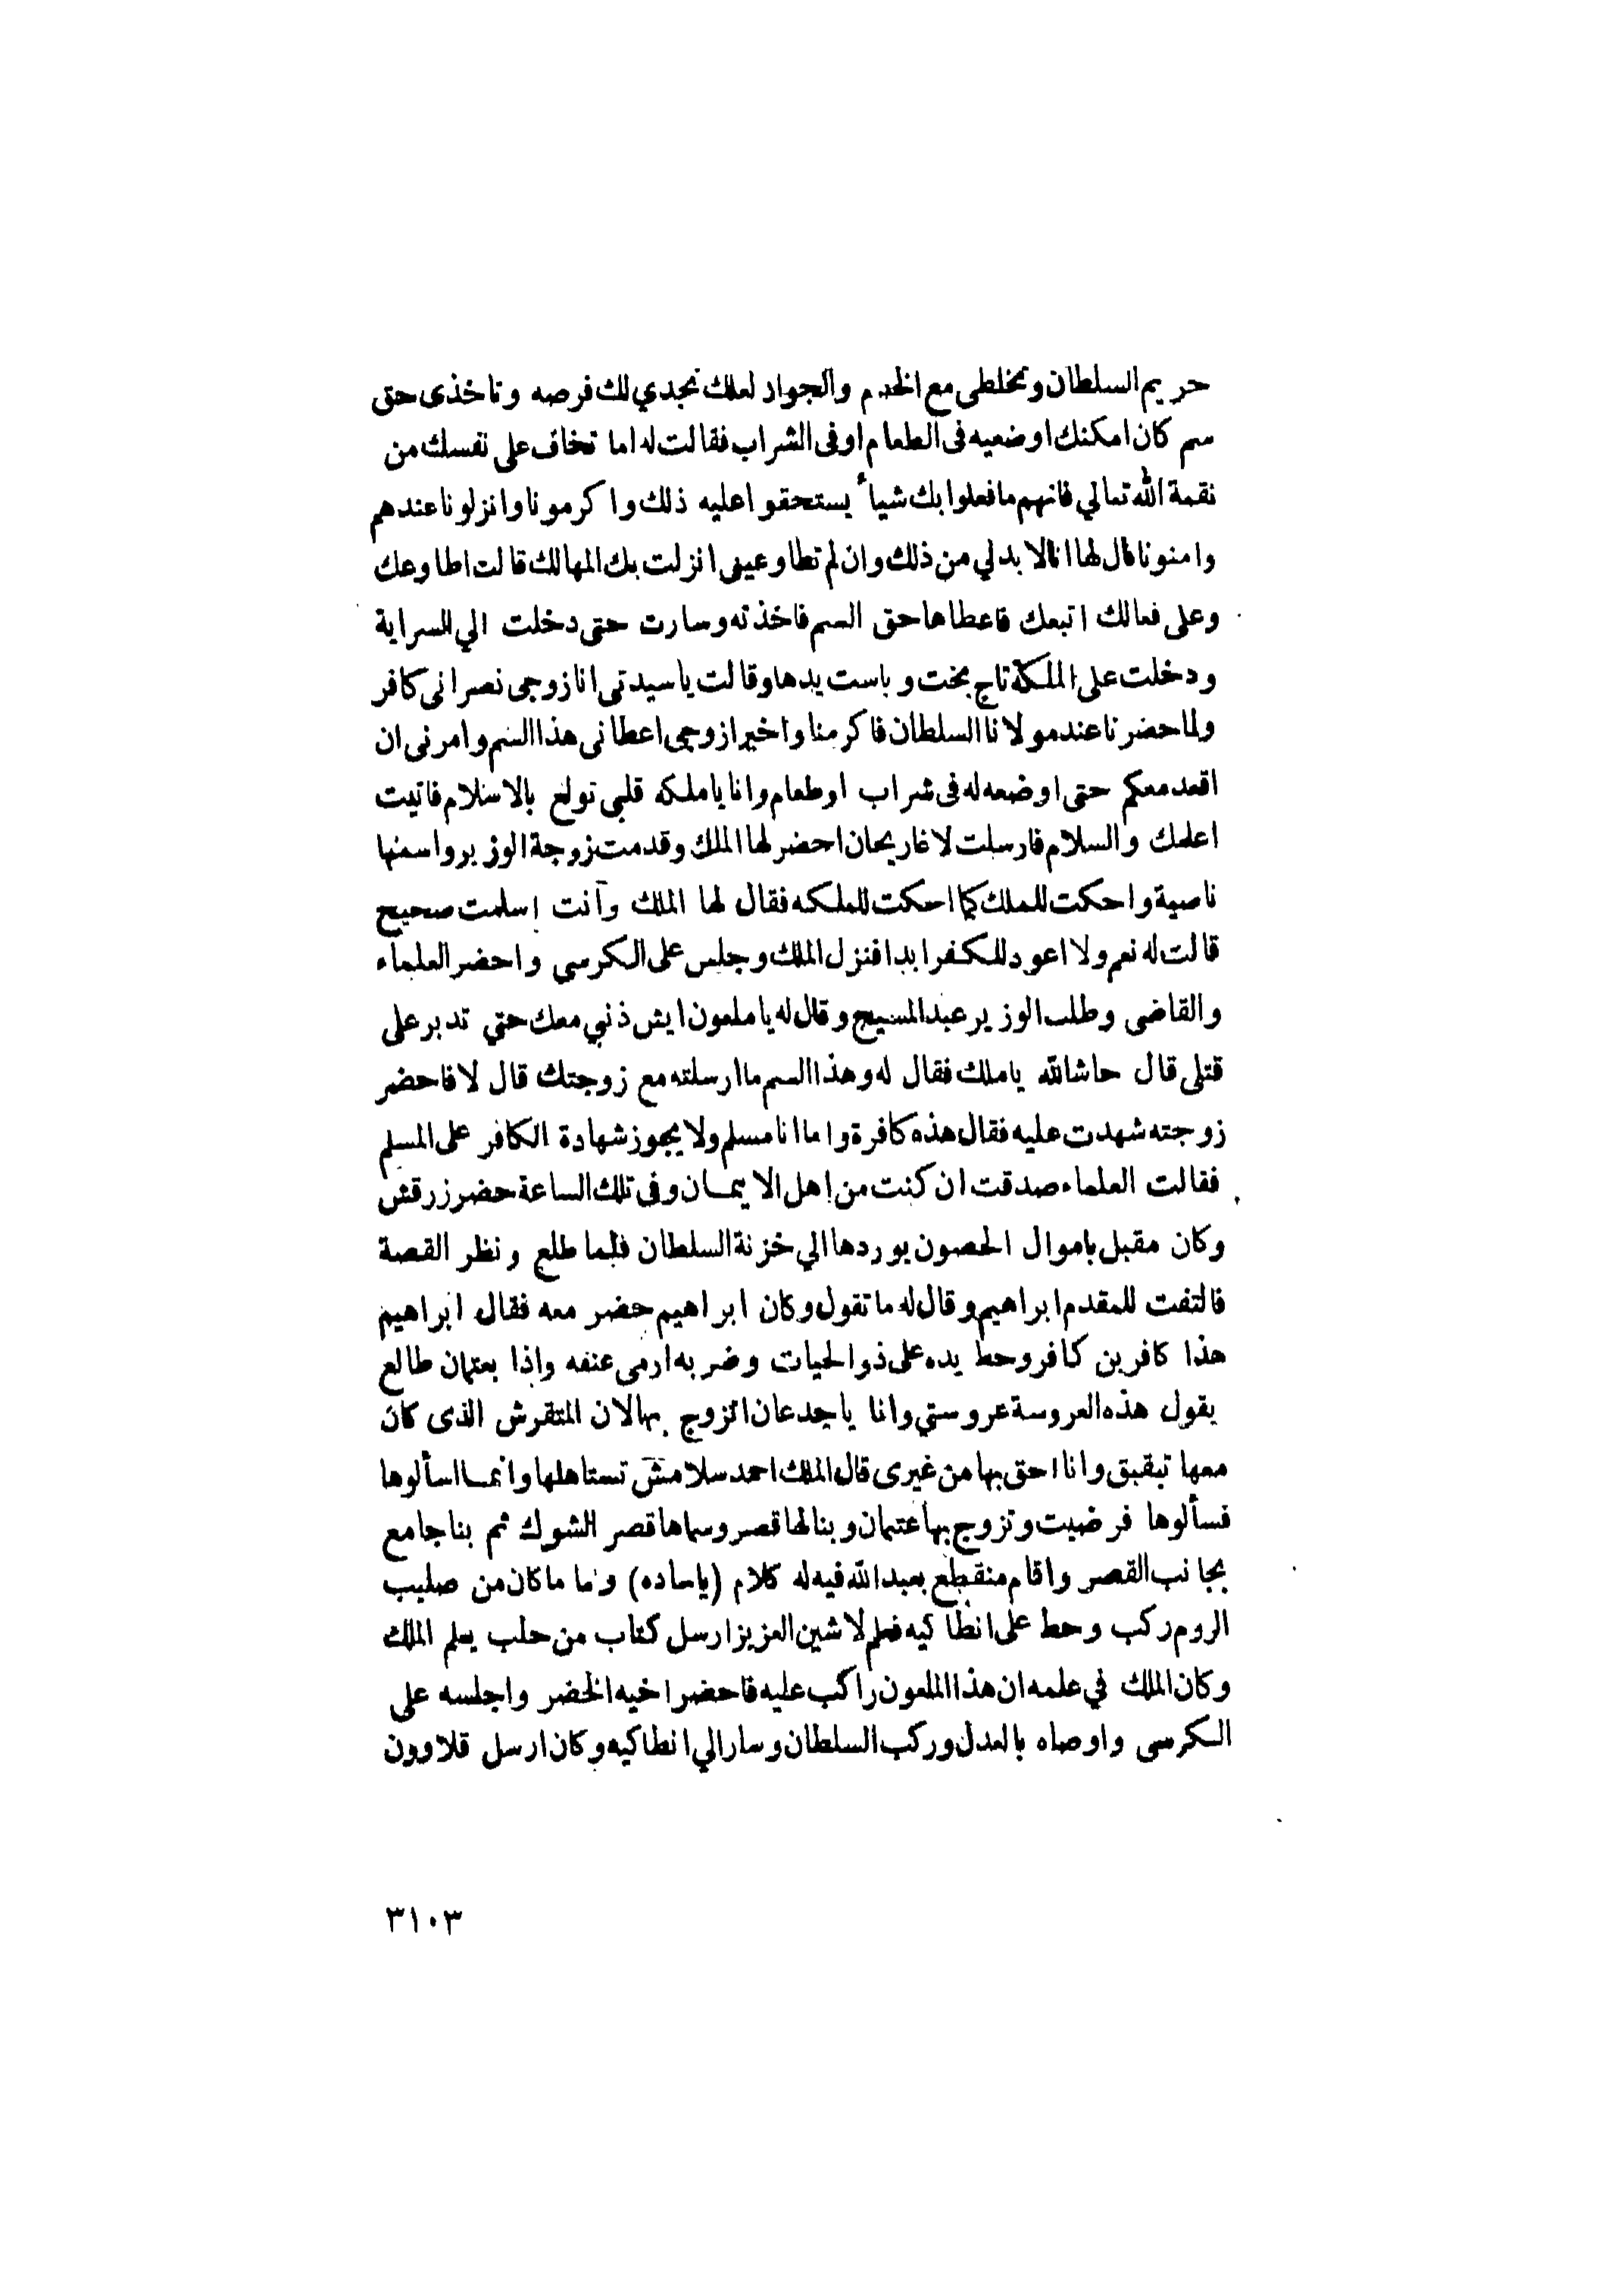 حريم السلطان وتختلطى مع الخدم والجوار لعلك تجدي لك فرصه وتاخذى حق
سم كان امكنك اوضعيه فى الطعام اوفى الشراب فقالت له اما تخاف على نفسك من
نقمة الله تعالي فانهم مافعلوا بك شيأ يستحقوا عليه ذلك واكرمونا وانزلونا عندهم
وامنونا قال لها انالابد لي من ذلك وان لم تطاوعينى انزلت بك المهالك قالت اطاوعك
وعلى فعالك اتبعك فاعطاها حق السم فاخذته وسارت حتى دخلت الي السراية
ودخلت على الملكة تاج بخت وباست يدها وقالت ياسيدتى انا زوجى نصرانى كافر
ولما حضرنا عند مولانا السلطان فاكرمنا واخيرا زوجى اعطانى هذا السم وامرنى ان
اقعد معكم حتى اوضعه له فى شراب اوطعام وانا ياملكه قلبى تولع بالاسلام فاتيت
اعلمك والسلام فارسلت لاغاريحان احضر لها الملك وقدمت زوجة الوزير واسمها
ناصية واحكت للملك كما احكت للملكه فقال لها الملك وآنت إسلمت صحيح
قالت له نعم ولا اعود للكفر ابدا فنزل الملك وجلس على الكرسي واحضر العلماء
والقاضى وطلب الوزير عبد المسيح وقال له ياملعون ايش ذنبي معك حتي تدبر على
قتلى قال حاشالله ياملك فقال له وهذا السم ما ارسلته مع زوجتك قال لا فاحضر
زوجته شهدت عليه فقال هذه كافرة واما انا مسلم ولا يجوز شهادة الكافر على المسلم
فقالت العلماء صدقت ان كنت من إهل الايمان وفى تلك الساعة حضر زرقش
وكان مقبل باموال الحصون يوردها الي خزنة السلطان فلما طلع ونظر القصة
فالتفت للمقدم ابراهيم وقال له ما تقول وكان ابراهيم حضر معه فقال ابراهيم
هذا كافر بن كافر وحط يده على ذوالحيات وضربه ارمى عنقه وإذا بعتمان طالع
يقول هذه العروسة عروستي وانا ياجدعان اتزوج بهالان المتقرش الذى كان
معها تبقبق وانا احق بها من غيرى قال الملك احمد سلامش تستاهلها وانما اسألوها
فسألوها فرضيت وتزوج بها عتمان وبنالها قصر وسماها قصر الشوك ثم بنا جامع
بجانب القصر واقام منقطع بعبد الله فيه له كلام (ياساده) وما ماكان من صليب
الروم ركب وحط على انطاكيه فعلم لاشين العزيز ارسل كتاب من حلب يعلم الملك
وكان الملك في علمه ان هذا الملعون راكب عليه فاحضر اخيه الخضر واجلسه على
الكرسى واوصاه بالعدل وركب السلطان وسار الي انطاكيه وكان ارسل قلاوون
٣١٠٣